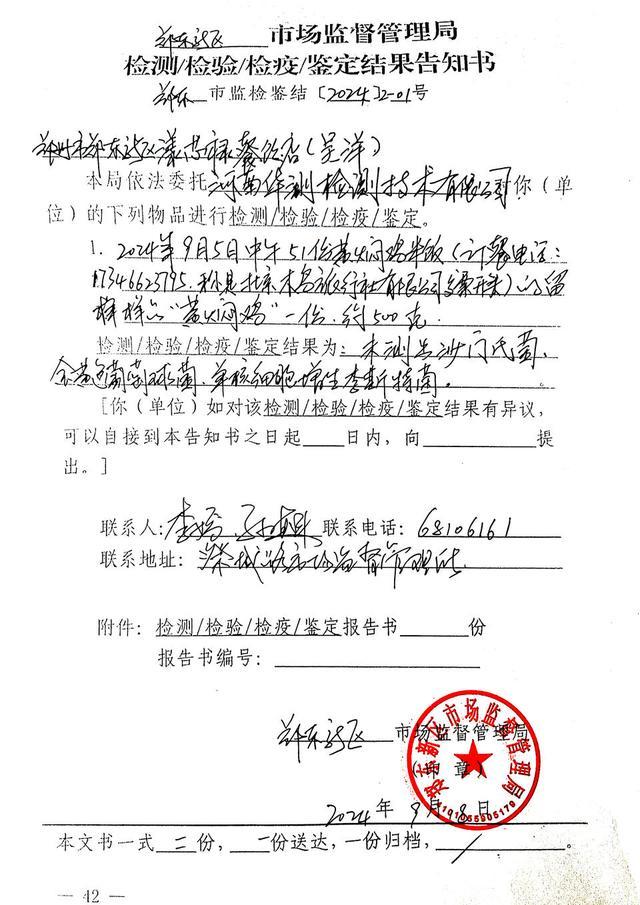 郑东新区市场监督管理局
检测/检验/检疫/鉴定结果告知书
郑东市监检鉴结〔2024〕2-01号
郑州市郑东新区漾芎禄餐饮店(吴洋)
本局依法委托河南华测检测技术有限公司你(单
位)的下列物品进行检测/检验/检疫/鉴定。
1. 2024年9月5日中午51份黄焖鸡米饭(订餐电话:
17346623795,称是北京木鸟旅行社有限公司)的留
样样品"黄焖鸡"一份,约500克
检测/检验/检疫/鉴定结果为:未测出沙门氏菌,
金黄色葡萄球菌,单核细胞增生李斯特菌。
[你(单位)如对该检测/检验/检疫/鉴定结果有异议,
可以自接到本告知书之日起____日内,向________提
出。]
联系人:李 联系电话:68106161
联系地址:市场监督管理所
附件:检测/检验/检疫/鉴定报告书____份
报告书编号:________
郑东新区市场监督管理局
(印章)
郑东新区市场监督管理局
4101055505170
2024年9月8日
本文书一式二份,一份送达,一份归档,/。
— 42 —